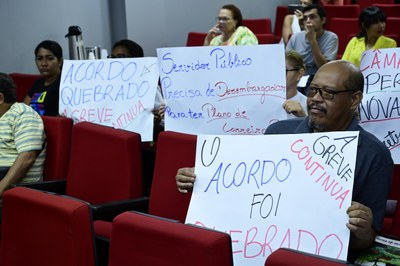 ACORDO
QUEBRADO
A GREVE
CONTINUA
Servidor Público
Precisa de Desembargador
Para ter Plano de
Carreira
O
ACORDO
FOI
QUEBRADO
A GREVE
CONTINUA
PER
NOVA